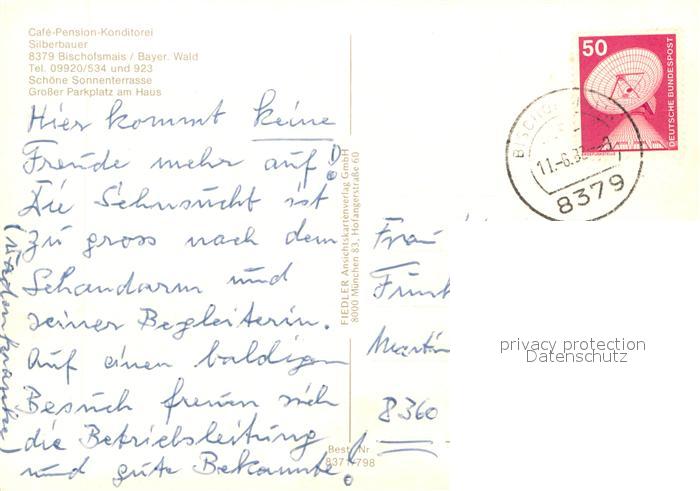 Café-Pension-Konditorei
Silberbauer
8379 Bischofsmais / Bayer. Wald
Tel. 09920/534 und 923
Schöne Sonnenterrasse
Großer Parkplatz am Haus
Hier kommt keine
Freude mehr auf!
Die Sehnsucht ist
zu gross nach dem
Schandarm und
seiner Begleiterin.
Auf einen baldigen
Besuch freuen sich
die Betriebsleitung
und gute Bekannte!
FIEDLER Ansichtskartenverlag GmbH
8000 München 83, Hofangerstraße 60
Best. Nr
8371/798
50
DEUTSCHE BUNDESPOST
11.-6.83
8379
Frau
Martin
8360
privacy protection
Datenschutz